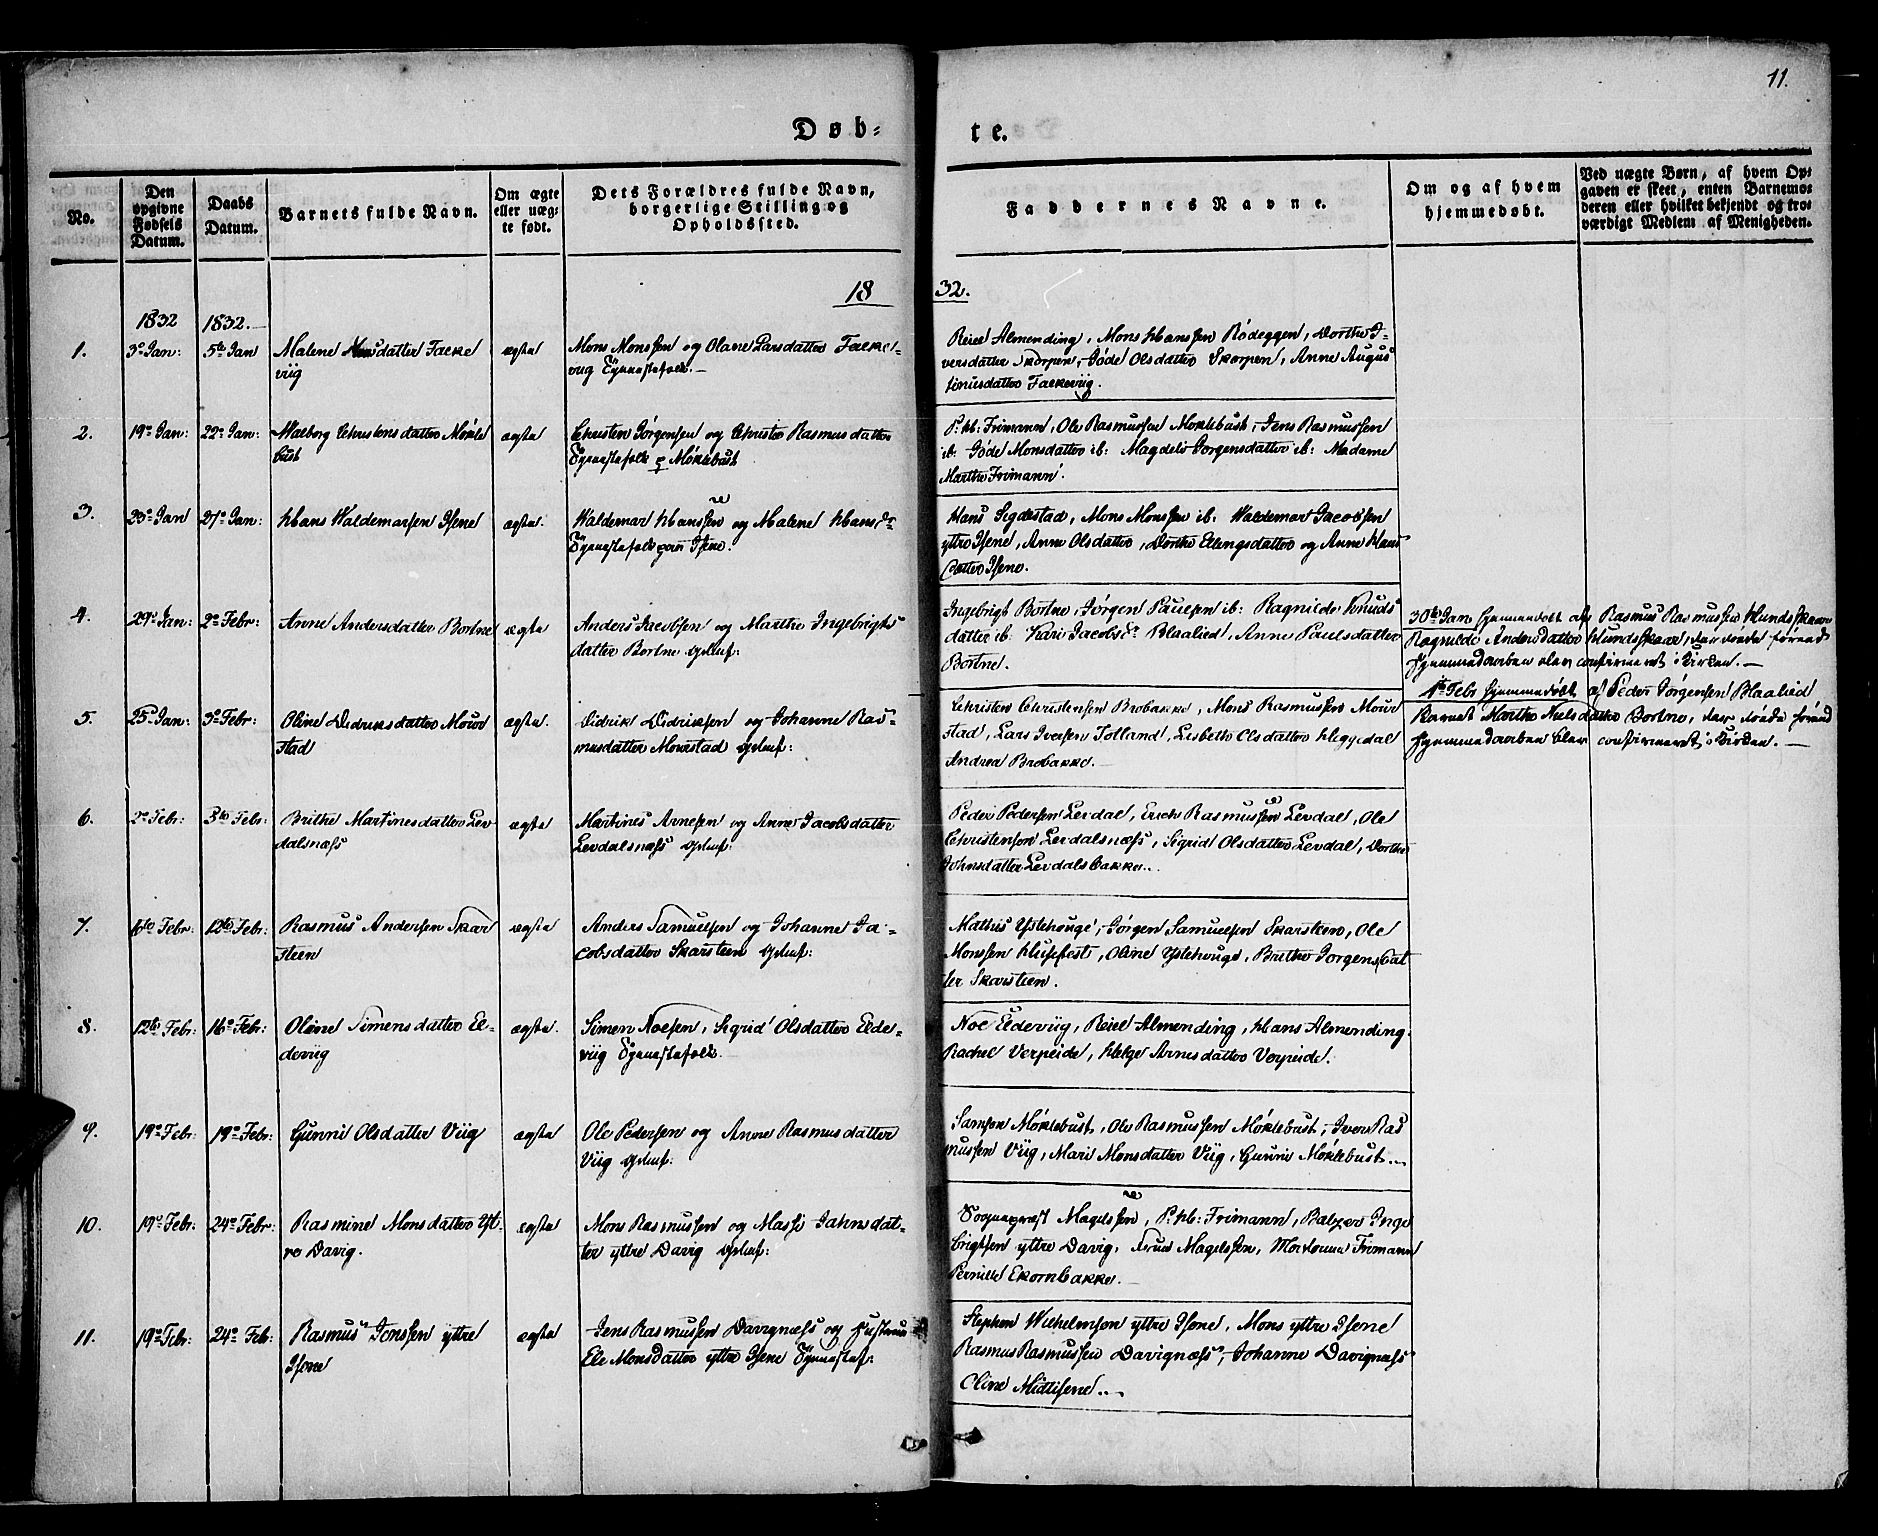 11.
Døb-
te.
No.
Den opgivne Fødsels Datum.
Daabs Datum.
Barnets fulde Navn.
Om ægte eller uæg-te født.
Dets Forældres fulde Navn, borgerlige Stilling og Opholdssted.
Faddernes Navne.
Om og af hvem hjemmedøbt.
Ved uægte Børn, af hvem Op-gaven er skeet, enten Barnemo-deren eller hvilket bekjendt og tro-værdigt Medlem af Menigheden.
18
32.
1832
1832.
1.
3die Jan:
5te Jan
Malene Monsdatter Faelke
viig
ægte
Mons Monssen og Olane Larsdatter Faelke-
viig Egnestefolk.
Reiel Almending, Mons Hanssen Rödeggen, Dorthe I-
versdatter Skorpen, Göde Olsdatter Skorpen, Anne Augus
tinusdatter Faelkeviig.
2.
19de Jan:
22de Jan:
Malborg Christensdatter Mökle
bust
ægte
Christen Jörgensen og Christie Rasmusdatter
Egnestefolk p Möklebust
P. hl: Frimann, Ole Rasmussen Möklebust, Jens Rasmussen
ib: Göde Monsdatter ib: Magdeli Jorgensdatter ib: Madame
Marthe Frimann.
3.
23de Jan
27de Jan:
Hans Waldemarsen Isene
ægte.
Waldemar Hanssen og Malene Hansdr
Egnestefolk paa Isene.
Hans Segdestad, Mons Monssen ib: Waldemar Jacobsen
yttre Isene, Anne Olsdatter, Dorthe Ellingsdatter og Anne Hans
datter Isene.
4.
29de Jan:
2de Febr:
Anne Andersdatter Bortne
ægte
Anders Jacobsen og Marthe Ingebrigts
datter Bortne Gaard:
Ingebrigt Bortne, Jörgen Paulsen ib: Ragnilde Knuds
datter ib: Kari Jacobsdr Blaalied, Anne Paulsdatter
Bortne.
30te Jan hjemmedöbt af Rasmus Rasmussen Hundskaar
Ragnilde Andersdatter Hundskaar, der tredie forend
hjemmedaaben blev confirmeret i Kirken.
5.
25de Jan:
3die Febr:
Oline Didriksdatter Mour
stad
ægte.
Didrik Didriksen og Johanne Ras-
musdatter Mourstad
Christen Christensen Brobakke, Mons Rasmussen Mour
stad, Lars Iversen Tolland, Lisbeth Olsdatter Heggedal
Andrea Brobakke.
1ste Febr hjemmedöbt af Peder Jörgensen Blaalied
Barnet Marthe Nielsdatter Bortne, der tredie forend
hjemmedaaben blev confirmeret i Kirken.
6.
2de Febr:
5te Febr:
Brithe Martinesdatter Lev
dalsnæss
ægte
Martines Arnesen og Anne Jacobsdatter
Levdalsnæss
Peder Pedersen Levdal, Erich Rasmussen Levdal, Ole
Christensen Levdalsnæss, Sigrid Olsdatter Levdal, Dorthe
Johnsdatter Levdalsbakke.
7.
6te Febr:
12te Febr:
Rasmus Andersen Skar
steen
ægte
Anders Samuelsen og Johanne Ja-
cobsdatter Skarsteen
Mathis Ystehouge, Jörgen Samuelsen Skarsteen, Ole
Monssen Huffest, Oline Ystehouge, Brithe Jorgensdat
ter Skarsteen.
8.
12te Febr:
16de Febr:
Oline Simensdatter El-
deviig
ægte.
Simen Noesen, Sigrid Olsdatter Elde-
viig Egnestefolk.
Noe Eldeviig, Reiel Almending, Hans Almending.
Rachel Verpeide, Helge Arnesdatter Verpeide.
9.
19de Febr:
19de Febr:
Gunni Olsdatter Viig
ægte
Ole Pedersen og Anne Rasmusdatter
Viig
Samson Möklebust, Ole Rasmussen Möklebust, Iver Ras
mussen Viig, Mari Monsdatter Viig, Gunni Möklebust.
10.
19de Febr:
24de Febr:
Rasmine Monsdatter Yt-
re Davig.
ægte
Mons Rasmussen og Massi Jahnsdat-
ter yttre Davig
Sognepræst Magelssen, P. hl: Frimann, Balzer Inge
brigtsen yttre Davig, Frue Magelssen, Frimann
Pernille Ekornbakke.
11.
19de Febr:
24de Feb:
Rasmus Jenssen yttre
Isene
ægte
Jens Rasmussen Davignæss og Hustru
Ele Monsdatter yttre Isene
Stephen Wilhelmsen yttre Isene, Mons yttre Isene
Rasmus Rasmussen Davignæss, Johanne Davignæss
Oline Midtisene.